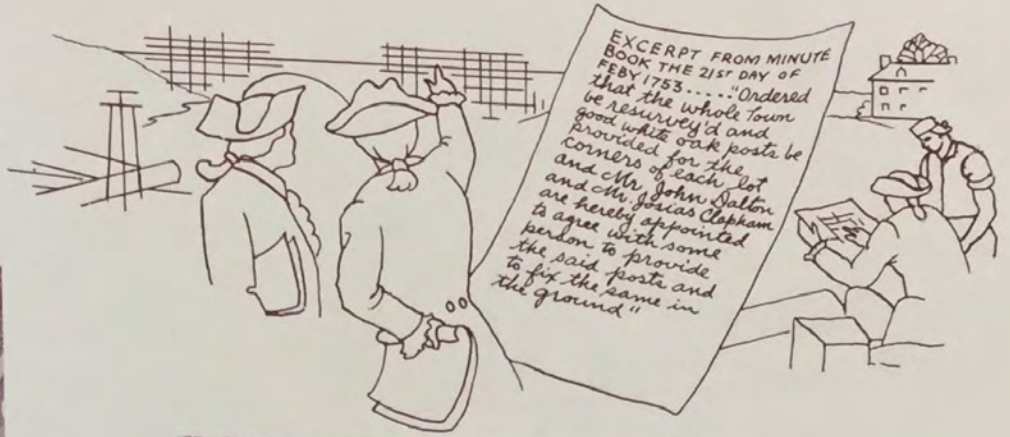 EXCERPT FROM MINUTE
BOOK THE 21ST DAY OF
FEBY 1753....."Ordered
that the whole Town
be resurvey'd and
good white oak posts be
provided for the
corners of each lot
and Mr. John Dalton
and Mr. Josias Clapham
are hereby appointed
to agree with some
person to provide
the said posts and
to fix the same in
the ground"